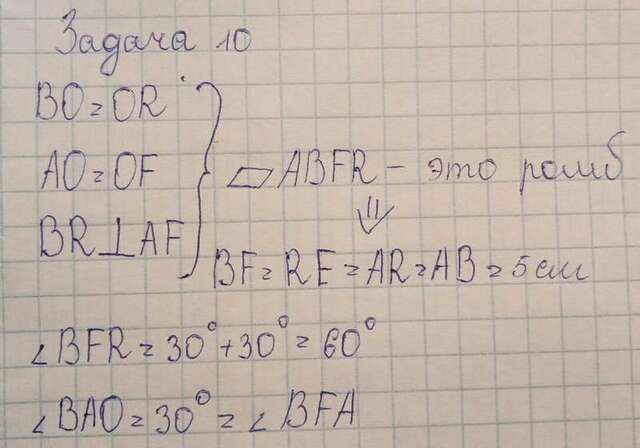 Задача 10
BO=OR
AO=OF
BR⊥AF
▱ABFR - это ромб
⇓
BF=RF=AR=AB=5см
∠BFR=30°+30°=60°
∠BAO=30°=∠BFA